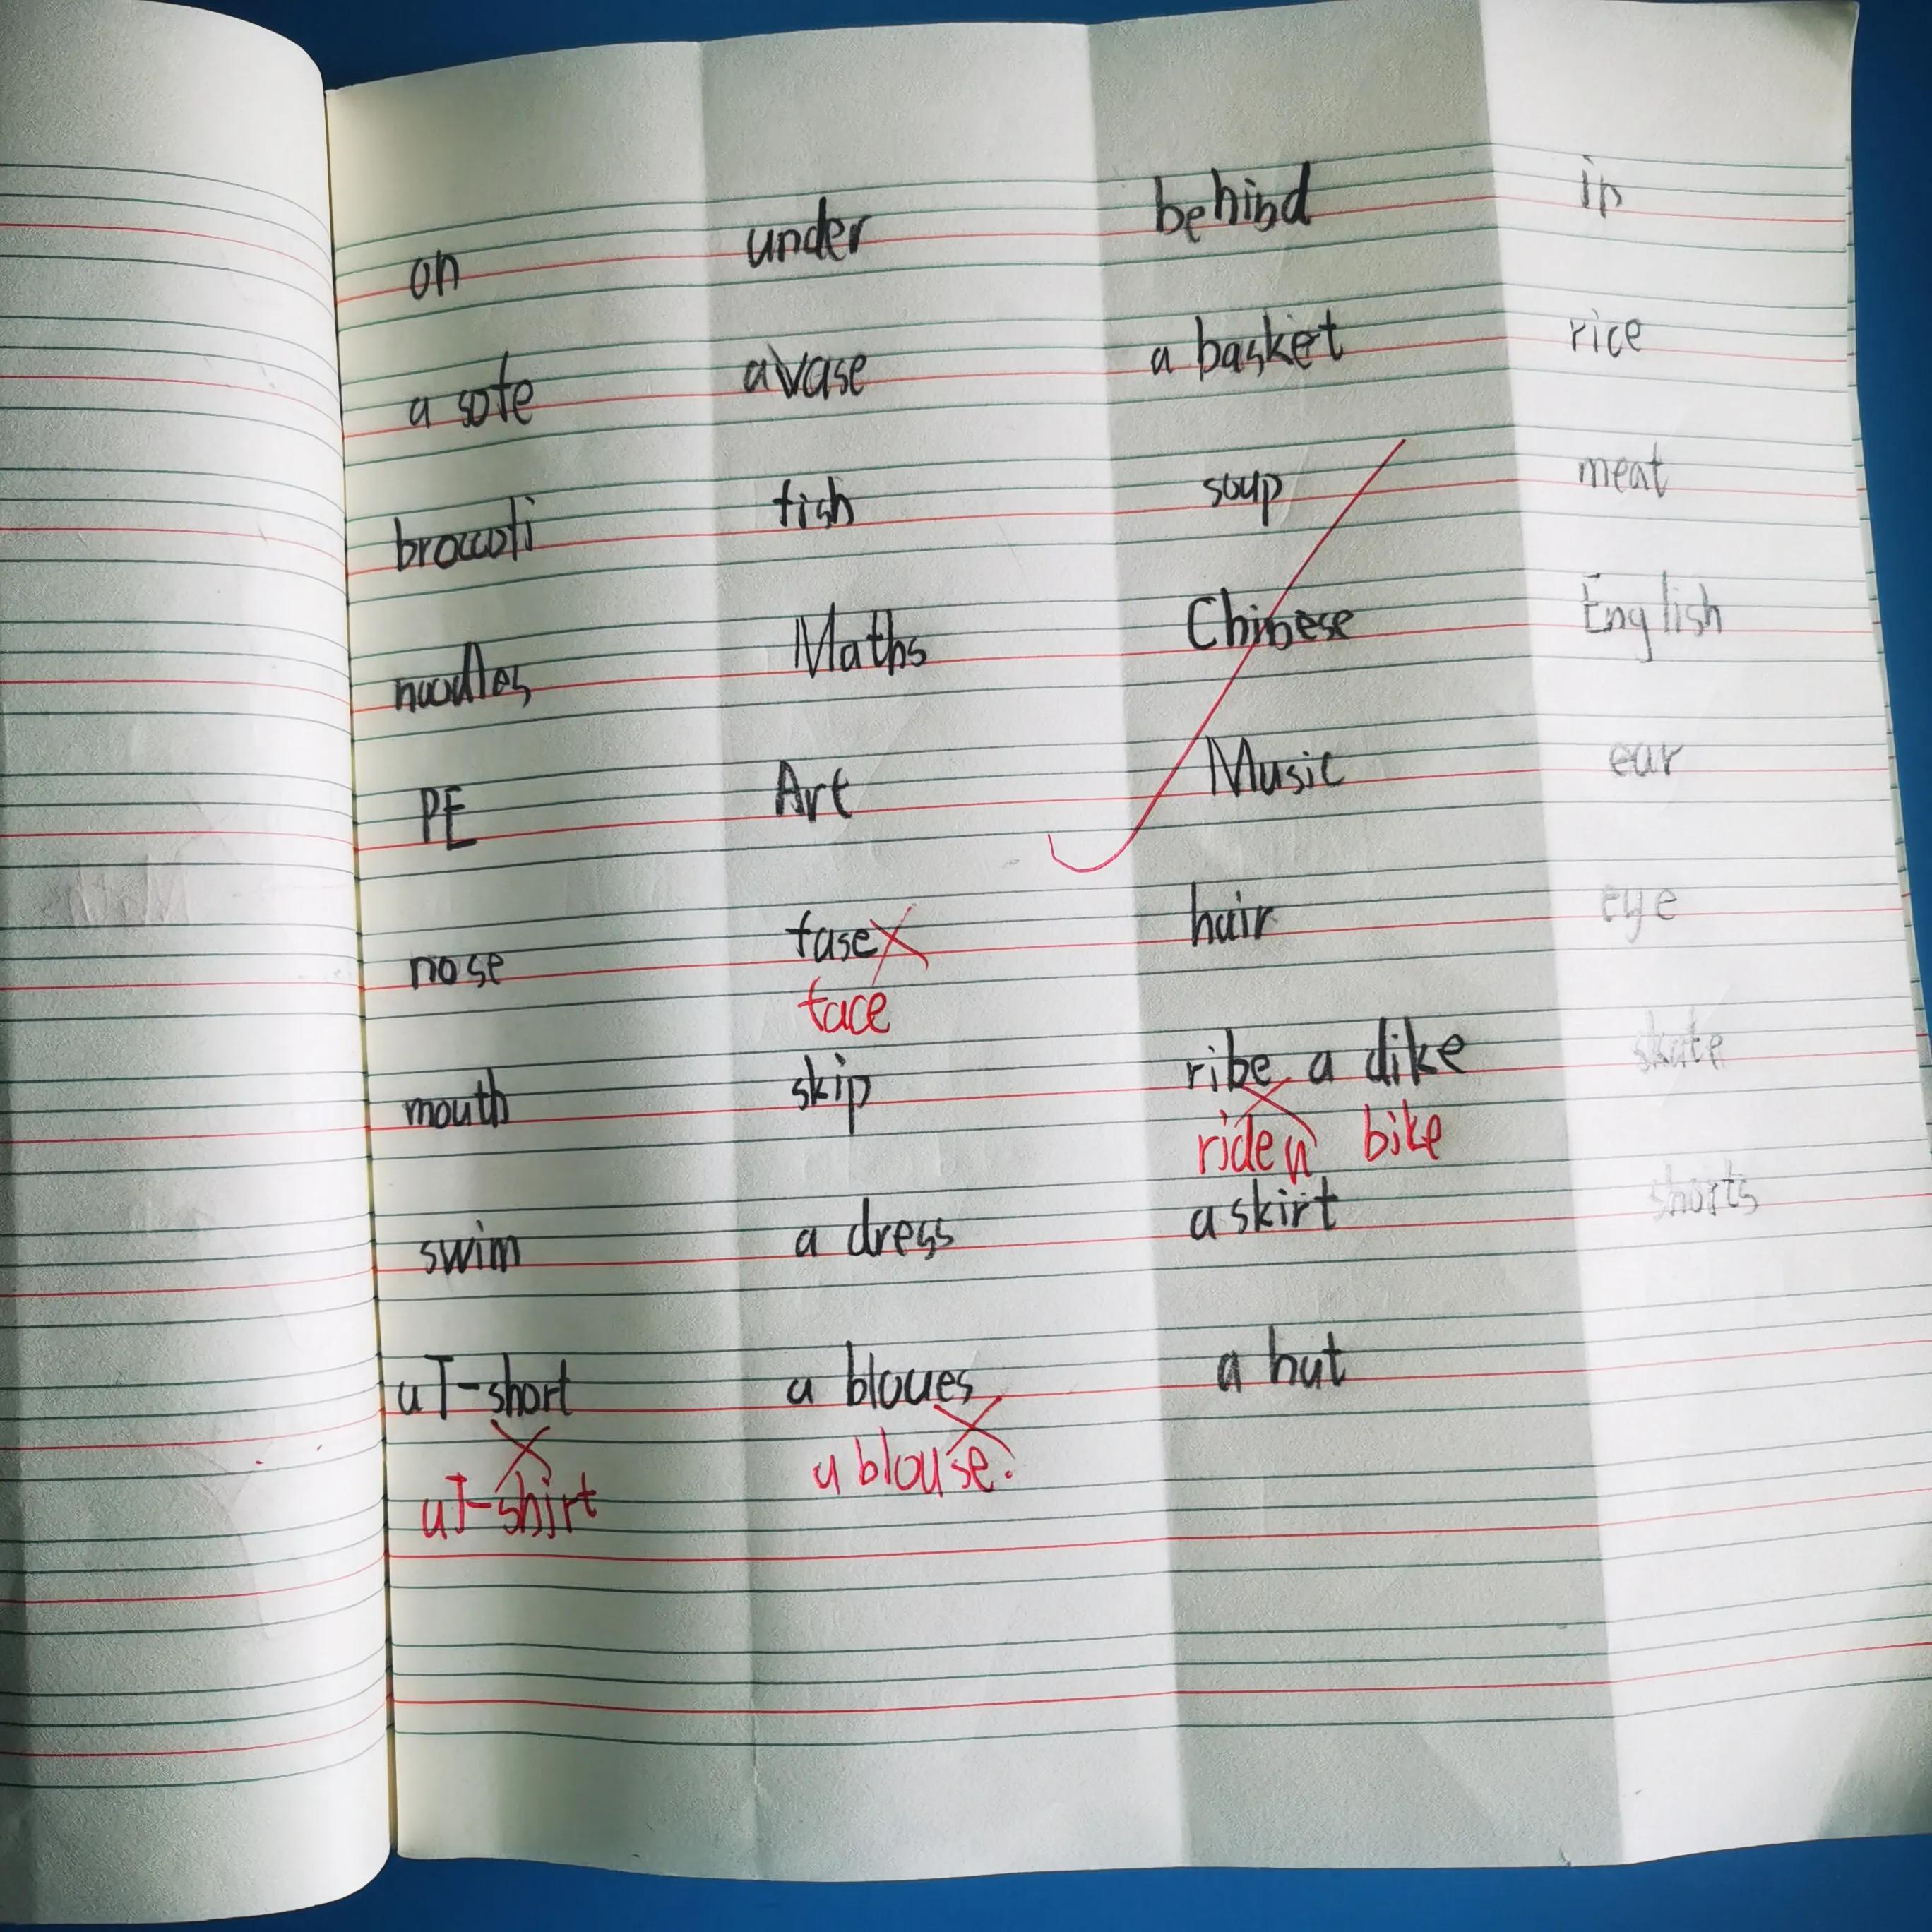 on under behind in
a sofe a vase a basket rice
broccoli fish soup meat
noodles Maths Chinese English
PE Art Music ear
nose fase hair eye
face
mouth skip ribe a dike skate
ride a bike
swim a dress a skirt shorts
a T-short a bloues a hat
a T-shirt a blouse.